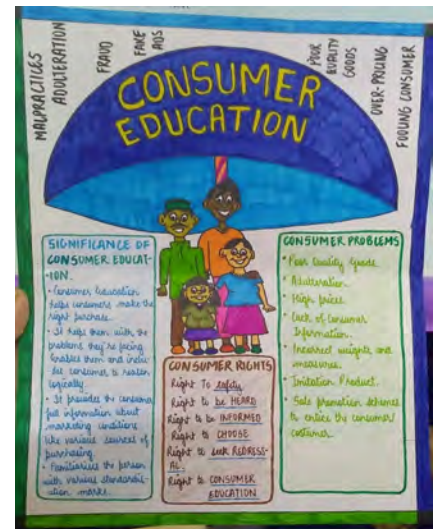 MALPRACTICES
ADULTERATION
FRAUD
FAKE
ADS
POOR
QUALITY
GOODS
OVER-PRICING
FOOLING CONSUMER
CONSUMER
EDUCATION
SIGNIFICANCE OF
CONSUMER EDUCAT-
-ION.
• Consumer Education
helps consumers make the
right purchase.
• It helps them with the
problems they're facing
Enables them and
consumer to reason
logically.
• It provides the consumer
information about
marketing conditions
like various sources of
purchasing.
• Familiarises the person
with various standardis-
-ation marks.
CONSUMER RIGHTS
Right To safety
Right to be HEARD
Right to be INFORMED
Right to CHOOSE
Right to seek REDRESS-
AL.
Right to CONSUMER
EDUCATION
CONSUMER PROBLEMS
• Poor Quality Goods
• Adulteration
• High prices
• Lack of Consumer
Information.
• Incorrect weights and
measures.
• Imitation Product.
• Sale promotion schemes
to entice the consumer/
costumer.